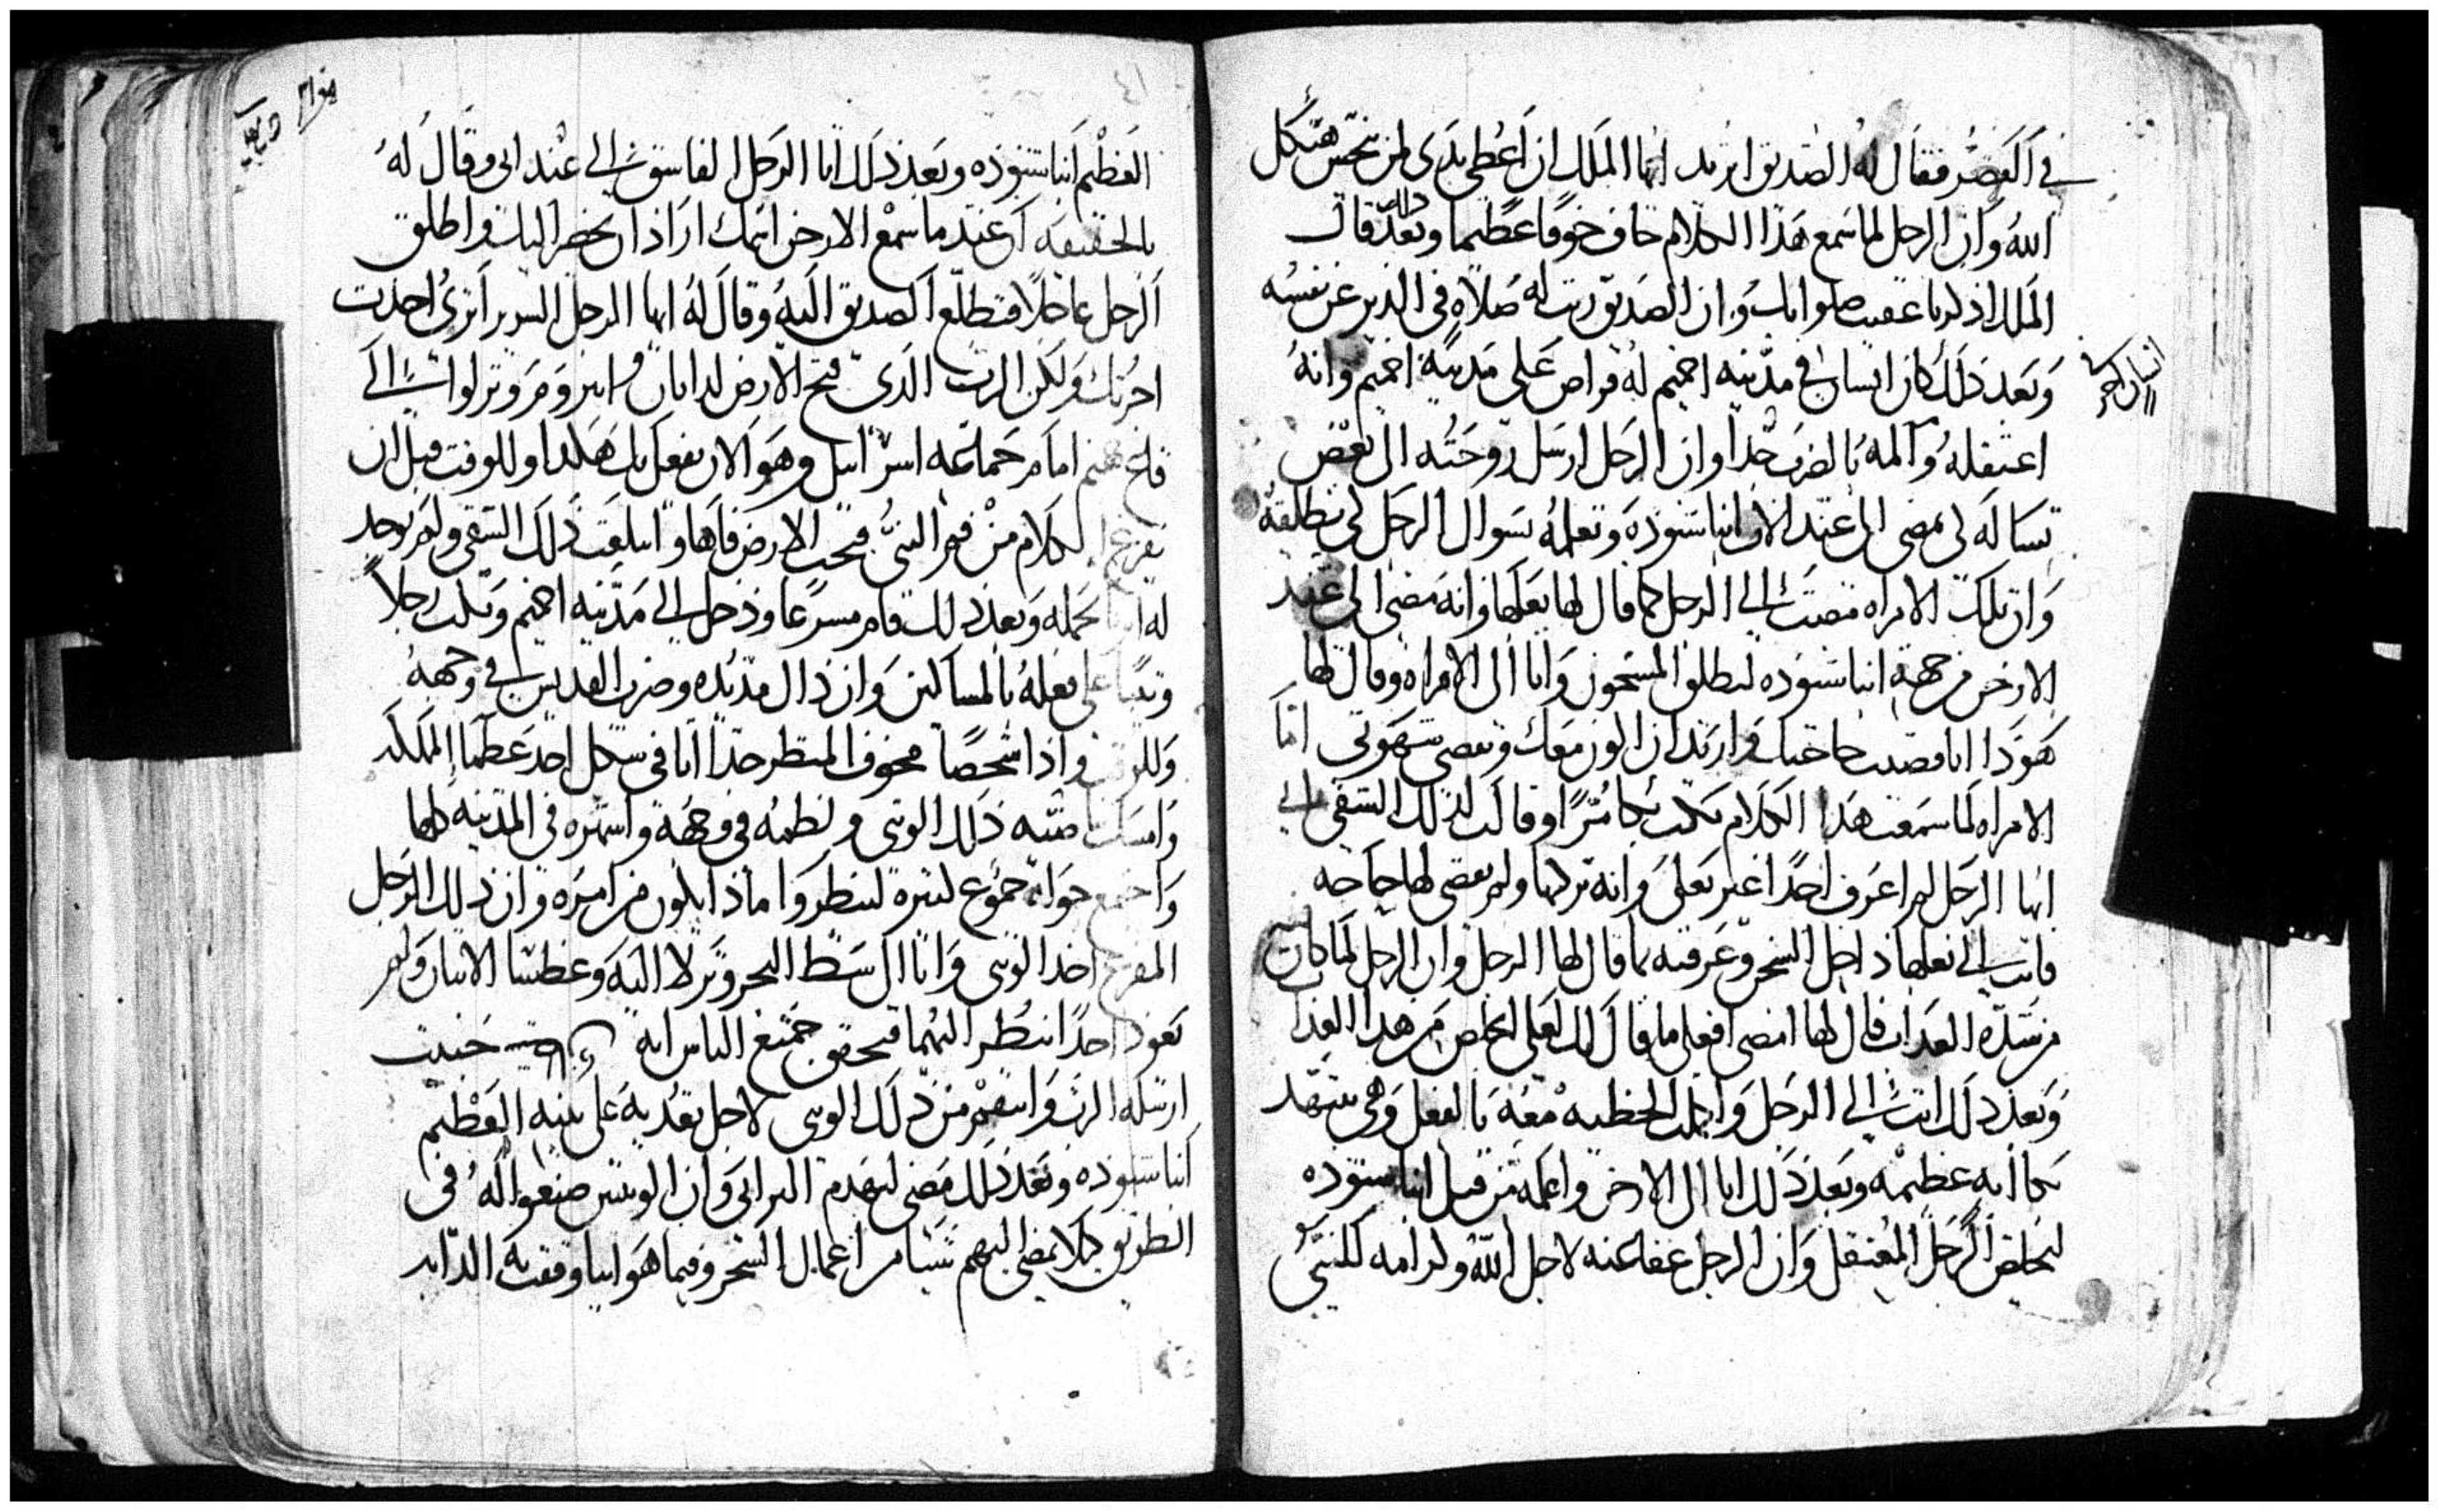 في القصر فقال له الصديق اتريد ايها الملك ان اعطي يدى لمن نجس هيكل
الله وان الرجل لما سمع هذا الكلام خاف خوفا عظيما وبعد ذلك قال
الملك اذكرنا عقيب صلواتك وان الصديق رتب له صلاه في الدير عن نفسه
وبعد ذلك كان انسان في مدينه اخميم له قراض على مدينة اخميم وانه
اعتقله وآلمه بالضرب جدا وان الرجل ارسل زوجته الى بعض
تساله لى يمضى الى عند الاب انبا شنوده وتعلمه بسوال الرجل لى يطلقه
وان تلك الامراه مضت الى الرجل كما قال لها بعلها وانه مضى الى عند
الارخن من جهة انبا شنوده ليطلق المسجون واتا الى الامراه وقال لها
هوذا انا قضيت حاجتك واريد ان اكون معك وتقضي شهوتى اما
الامراه لما سمعت هذا الكلام بكت بكا مرا وقالت لذلك الشقي
ايها الرجل لم اعرف احدا غير بعلى وانه تركها ولم يقضى لها حاجه
فاتت الى بعلها داخل السجن وعرفته بما قال لها الرجل وان الرجل لما كان
من شدة العذاب قال لها امضى افعلى ما قال لك لعلى اخلص من هذا العذاب
وبعد ذلك اتت الى الرجل واكملت الخطيه معه بالفعل وهي تتنهد
بكابه عظيمه وبعد ذلك اتا الى الارخن واعلمه من قبل انبا شنوده
ليخلص الرجل المعتقل وان الرجل عفا عنه لاجل الله ولكرامه للنبي
العظيم انبا شنوده وبعد ذلك اتا الرجل الفاسق الى عند ابى وقال له
بالحقيقه ان عندما سمع الارخن اسمك اراد ان يحضر اليك واطلق
الرجل عاجلا فتطلع الصديق اليه وقال له ايها الرجل الشرير اترى اخذت
اجرتك ولكن الرب الذى فتح الارض لداثان وابيروم ونزلوا الى
امام جماعه اسرائيل وهو الان يفعل بك هكذا وللوقت قبل ان
يفرغ الكلام من فم النبي فتحت الارض فاها وابتلعت ذلك الشقي ولم يوجد
له بجمله وبعد ذلك قام مسرعا ودخل الى مدينه اخميم وبكت رجلا
وثنيا على فعله بالمساكين وان ذاك مد يده وضرب القديس في وجهه
وللوقت واذا شخصا مخوف المنظر جدا اتا في شكل احد عظما المملكه
وامسك ذلك الوثنى ولطمه في وجهه واشهره في المدينه كلها
واجتمع حواه جموع كثيره لينظروا ماذا يكون من امره وان ذلك الرجل
المفزع اخذ الوثنى واتا الى شط البحر ونزلا اليه وغطسا الاثنان ولم
يعود احدا ينظر اليهما فتحقق جميع الناس انه حينيد
ارسله الرب وانتقم من ذلك الوثنى لاجل تعديه على نبيه العظيم
انبا شنوده وبعد ذلك مضى ليهدم البرابى وان الوثنيين صنعوا له في
الطريق كيلا يمضى اليهم شيئا من اعمال السحر وفيما هو اتيا وقفت به الدابه